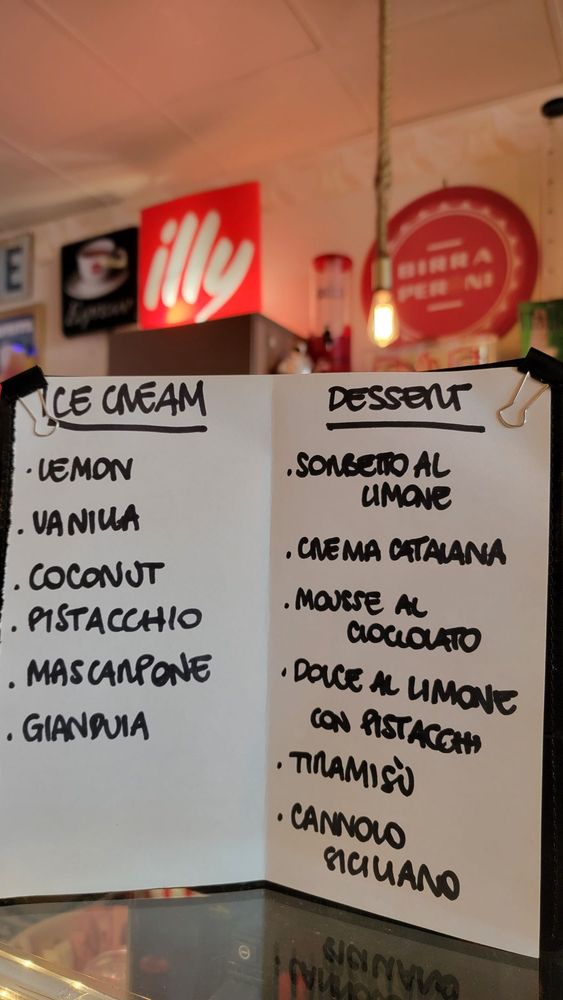 E
Espresso
illy
BIRRA
PERONI
ICE CREAM
. LEMON
. VANILLA
. COCONUT
. PISTACCHIO
. MASCARPONE
. GIANDUIA
DESSERT
. SORBETTO AL
LIMONE
. CREMA CATALANA
. MOUSSE AL
CIOCCOLATO
. DOLCE AL LIMONE
CON PISTACCHI
. TIRAMISÙ
. CANNOLO
SICILIANO